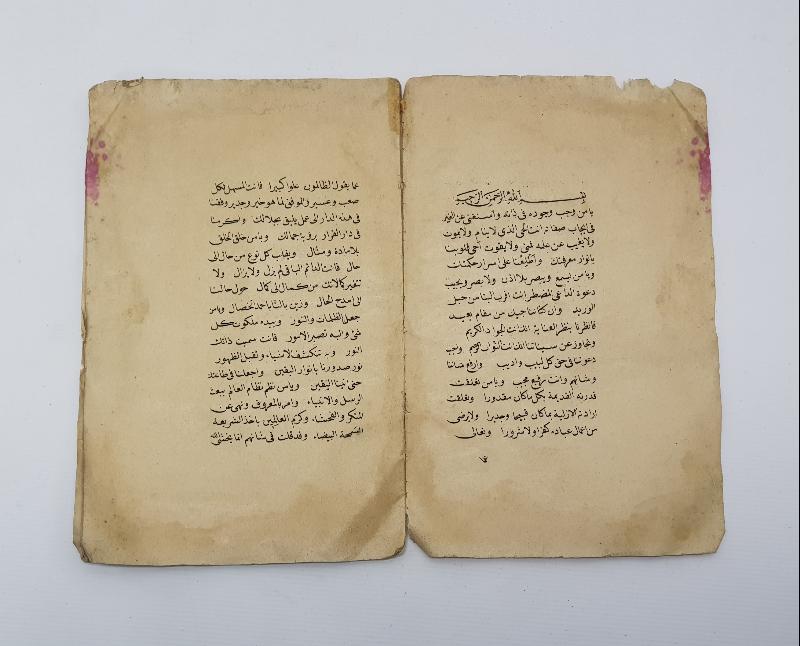 بسم الله الرحمن الرحيم
يا من وجب وجوده في ذاته واستغنى عن الغير
في ايجاب صفاته انت الحي الذي لا ينام ولا يموت
ولا يغيب عن علمه شيء ولا يفوت احي قلوبنا
بانوار معرفتك واطلعنا على اسرار حكمتك
ويا من يسمع ويبصر بلا اذن ولا بصر ويجيب
دعوة الداعي المضطر انت اقرب الينا من حبل
الوريد وان كنا بعيد من مقام
فانظرنا بنظر العناية انك انت الجواد الكريم
وتجاوز عن سيئاتنا انك انت التواب الرحيم
دعوتنا في حق كل لبيب واديب وارفع شاننا
وشانهم وانت رفيع مجيب ويا من تعلقت
قدرته القديمة بكل ما كان مقدورا وتعلقت
ارادته الازلية بما كان قبيحا وجديرا ولا يرضى
من اعمال عباده كفرا ولا شرورا وتعالى
عما
عما يقول الظالمون علوا كبيرا فانت المسهل لكل
صعب وعسير والموفق لما هو خير وجدير وفقنا
في هذه الدار الى عمل يليق بجلالك واكرمنا
في دار القرار برؤية جمالك ويا من خلق الخلق
بلا مادة ومثال ويقلب كل نوع من حال الى
حال فانت الدائم الباقي لم يزل ولا يزال ولا
تتغير كمالاتك من كمال الى كمال حول حالنا
الى امدح الحال وزين بالنا باحمد الخصال ويا من
جعل الظلمات والنور وبيده ملكوت كل
شئ واليه تصير الامور فانت سميت ذاتك
النور وبه تنكشف الاشياء وتقبل الظهور
نور صدورنا بانوار اليقين واجعلنا في طاعتك
حتى اتينا اليقين ويا من نظم نظام العالم ببعث
الرسل والانبياء وامر بالمعروف ونهى عن
المنكر والفحشاء وكرم العالمين باخذ الشريعة
السمحة البيضاء وقد قلت في شانهم انما يخشى الله